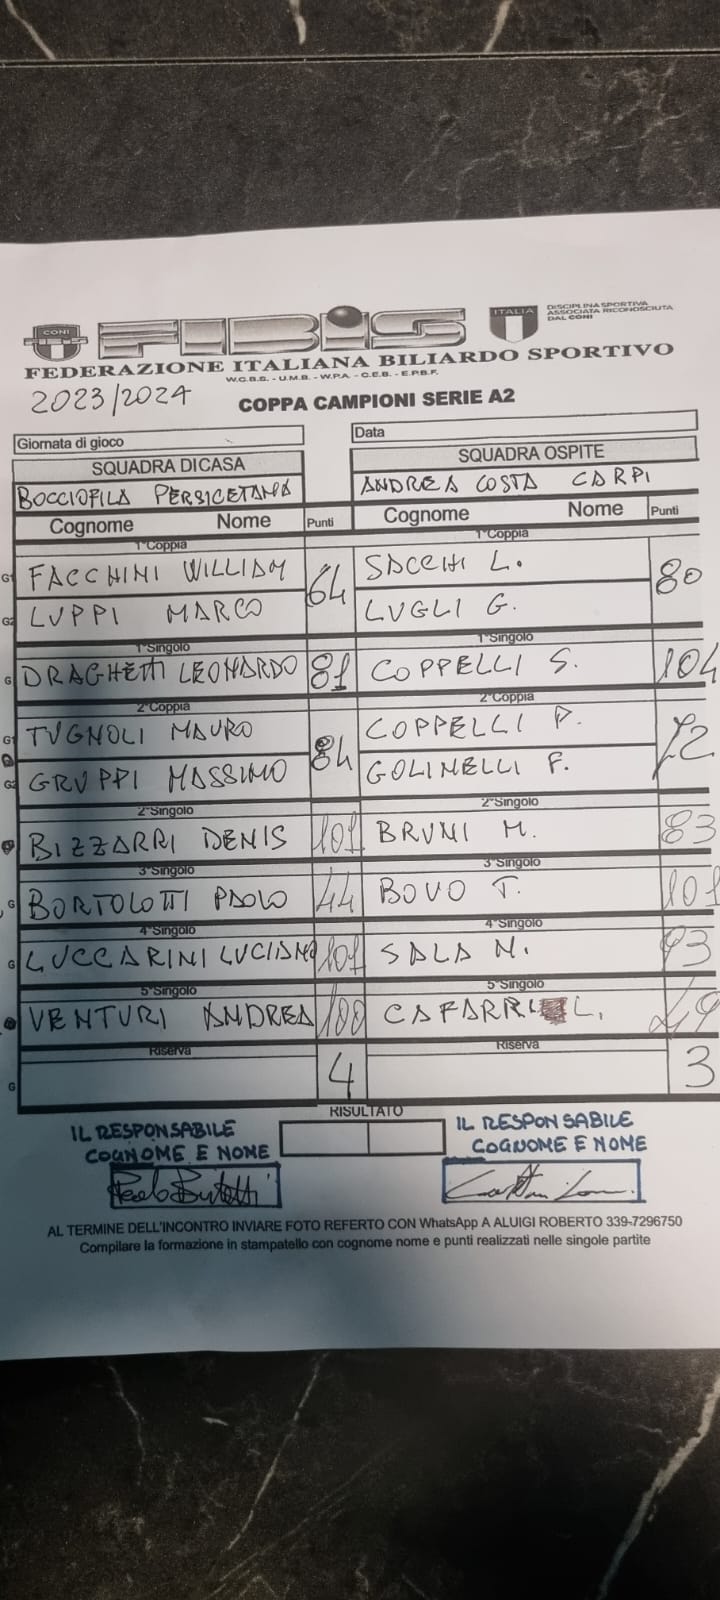 CONI
FIBiS
ITALIA
DISCIPLINA SPORTIVA
ASSOCIATA RICONOSCIUTA
DAL CONI
FEDERAZIONE ITALIANA BILIARDO SPORTIVO
W.C.B.S. - U.M.B. - W.P.A. - C.E.B. - E.P.B.F.
2023/2024 COPPA CAMPIONI SERIE A2
Giornata di gioco Data
SQUADRA DI CASA SQUADRA OSPITE
BOCCIOFILA PERSICETANA ANDREA COSTA CARPI
Cognome Nome Punti Cognome Nome Punti
1°Coppia 1°Coppia
G1 FACCHINI WILLIAM 64 SACCHI L. 80
G2 LUPPI MARCO LUGLI G.
1°Singolo 1°Singolo
G DRAGHETTI LEONARDO 81 COPPELLI S. 104
2°Coppia 2°Coppia
G1 TUGNOLI MAURO 84 COPPELLI P. 72
G2 GRUPPI MASSIMO GOLINELLI F.
2°Singolo 2°Singolo
BIZZARRI DENIS 101 BRUNI M. 83
3°Singolo 3°Singolo
G BORTOLOTTI PAOLO 44 BOVO T. 101
4°Singolo 4°Singolo
G LUCCARINI LUCIANO 101 SALA M. 93
5°Singolo 5°Singolo
VENTURI ANDREA 100 CAFARRI L. 49
Riserva Riserva
G 4 3
RISULTATO
IL RESPONSABILE IL RESPONSABILE
COGNOME E NOME COGNOME E NOME
AL TERMINE DELL'INCONTRO INVIARE FOTO REFERTO CON WhatsApp A ALUIGI ROBERTO 339-7296750
Compilare la formazione in stampatello con cognome nome e punti realizzati nelle singole partite